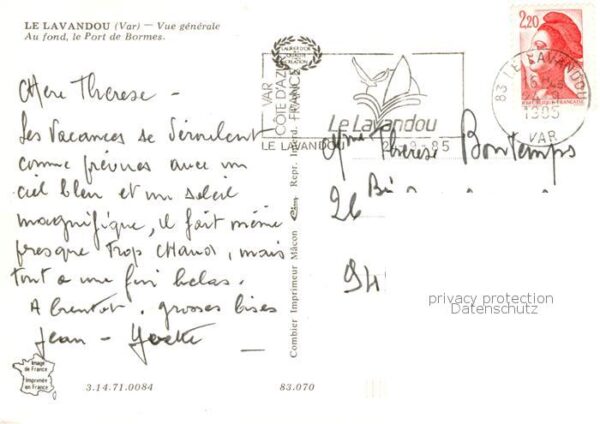 LE LAVANDOU (Var) — Vue générale
Au fond, le Port de Bormes.
Chère Therese -
Les Vacances se Déroulent
comme prévues avec un
ciel bleu et un soleil
magnifique, il fait même
presque trop chaud, mais
tout a une fin helas.
A bientot, grosses bises
Jean - Yvette
Image
de France
Imprimée
en France
3.14.71.0084
83.070
Combier Imprimeur Mâcon
Repr. Interd.
VAR
CÔTE D'AZUR
FRANCE
Le Lavandou
LE LAVANDOU
2,20
83 LE LAVANDOU
1985
VAR
Mme Therese Bontemps
26
94
privacy protection
Datenschutz